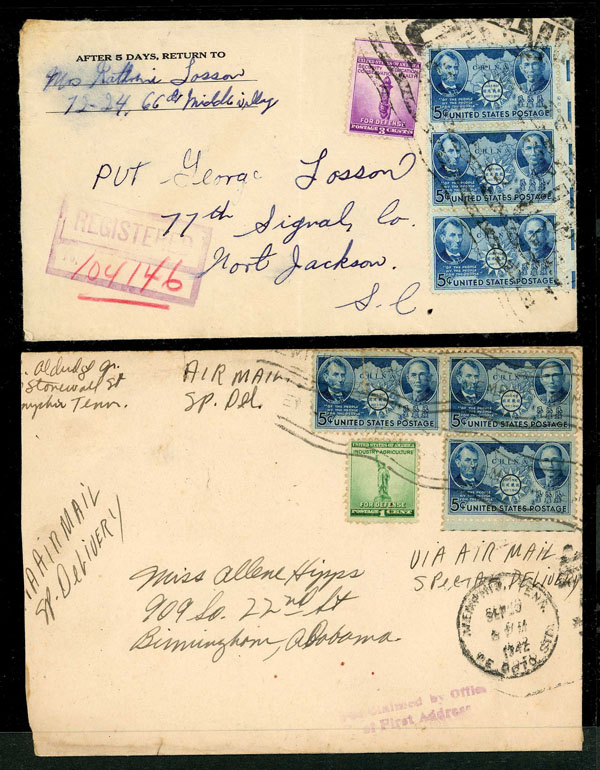 AFTER 5 DAYS, RETURN TO
Mrs Losson
72-24, 66 Middle Village
UNITED STATES OF AMERICA
FOR DEFENSE
POSTAGE 3 CENTS
CHINA
5¢ UNITED STATES POSTAGE
CHINA
5¢ UNITED STATES POSTAGE
CHINA
5¢ UNITED STATES POSTAGE
PVT George Losson
77th Signal Co.
Fort Jackson.
S.C.
REGISTERED
104146
Aldridge Jr.
Stonewall St
Tenn.
AIR MAIL
Sp. Del.
CHINA
5¢ UNITED STATES POSTAGE
CHINA
5¢ UNITED STATES POSTAGE
CHINA
5¢ UNITED STATES POSTAGE
UNITED STATES OF AMERICA
INDUSTRY AGRICULTURE
FOR DEFENSE
POSTAGE 1 CENT
AIR MAIL
Sp. DELIVERY
VIA AIR MAIL
SPECIAL DELIVERY
Miss Allene Hipps
909 So. 22nd St
Birmingham, Alabama.
MEMPHIS, TENN.
SEP
1942
DE SOTO STA.
Claimed by Office
of First Address